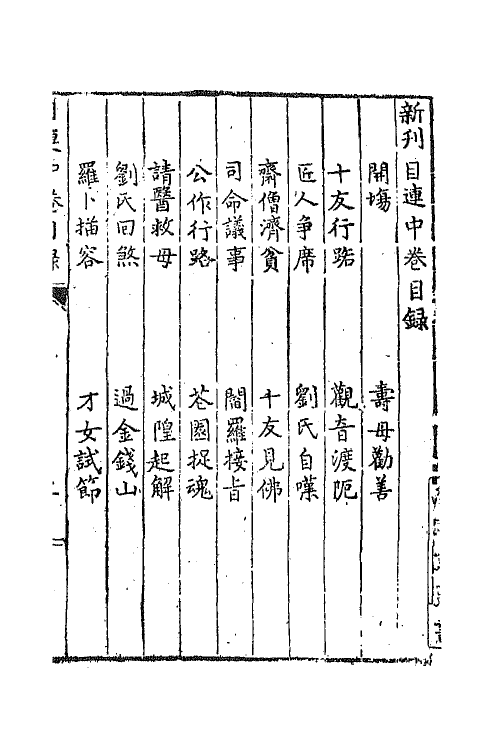 新刊目連中卷目録
開塲 壽母勸善
十友行路 觀音渡阨
匠人爭席 劉氏自嘆
齋僧濟貧 十友見佛
司命議事 閻羅接旨
公作行路 花園捉魂
請醫救母 城隍起解
劉氏回煞 過金錢山
羅卜描容 才女試節
目連中卷目録